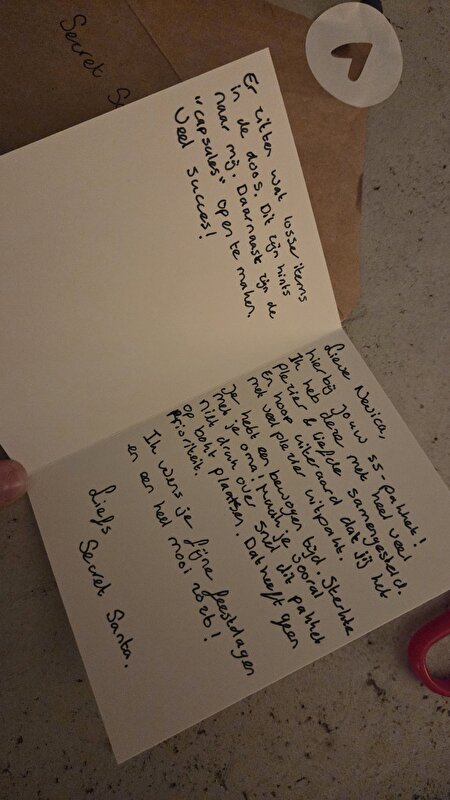 Secret Sa
Er zitten wat losse items
in de doos. Dit zijn hints
naar mij. Daarnaast zijn de
"capsules" open te maken.
Veel succes!
Lieve
hierbij jouw ss-pakket!
Ik heb deze met heel veel
plezier & liefde samengesteld.
En hoop uiteraard dat jij het
met veel plezier uitpakt.
Je hebt een bewogen tijd. Sterkte
met je oma! Maak je vooral
niet druk over snel dit pakket
op bokt plaatsen. Dat heeft geen
prioriteit.
Ik wens je fijne feestdagen
en een heel mooi 2026!
Liefs
Secret Santa.